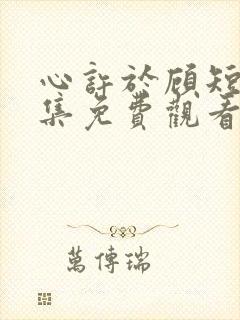 心許於顧短
集免費觀看
萬傳瑞